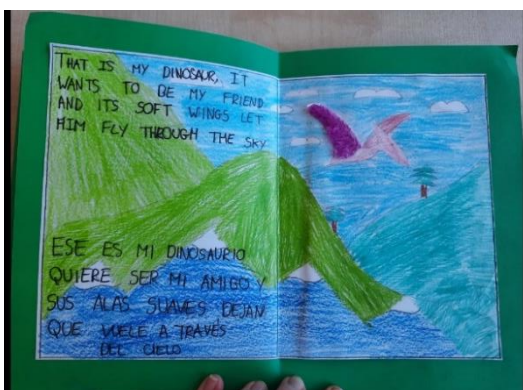 THAT IS MY DINOSAUR, IT
WANTS TO BE MY FRIEND
AND ITS SOFT WINGS LET
HIM FLY THROUGH THE SKY
ESE ES MI DINOSAURIO
QUIERE SER MI AMIGO Y
SUS ALAS SUAVES DEJAN
QUE VUELE A TRAVÉS
DEL CIELO